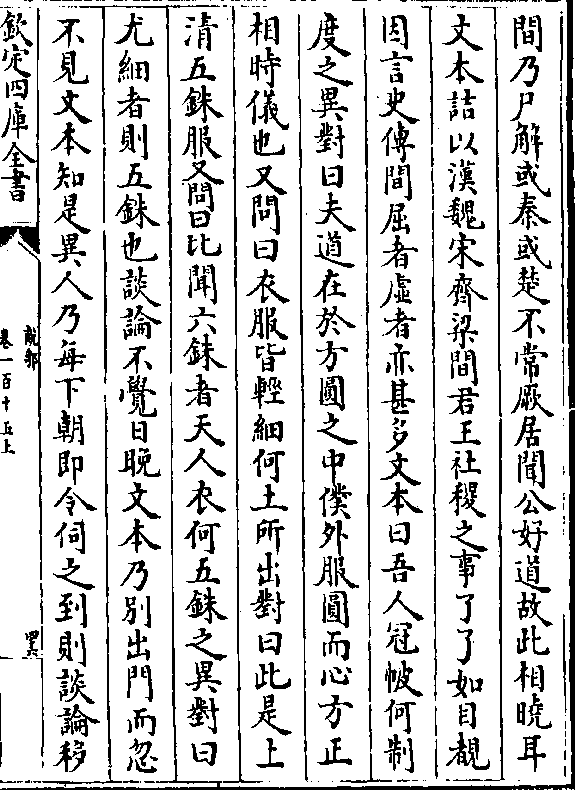 間乃尸解或秦或楚不常厥居聞公好道故此相曉耳
文本詰以漢魏宋齊梁間君王社稷之事了了如目覩
因言史傳間屈者虛者亦甚多文本曰吾人冠帔何制
度之異對曰夫道在於方圓之中僕外服圓而心方正
相時儀也又問曰衣服皆輕細何土所出對曰此是上
清五銖服又問曰比聞六銖者天人衣何五銖之異對曰
尤細者則五銖也談論不覺日晚文本乃別出門而忽
不見文本知是異人乃每下朝即令伺之到則談論移
欽定四庫全書
說郛
卷一百十五上